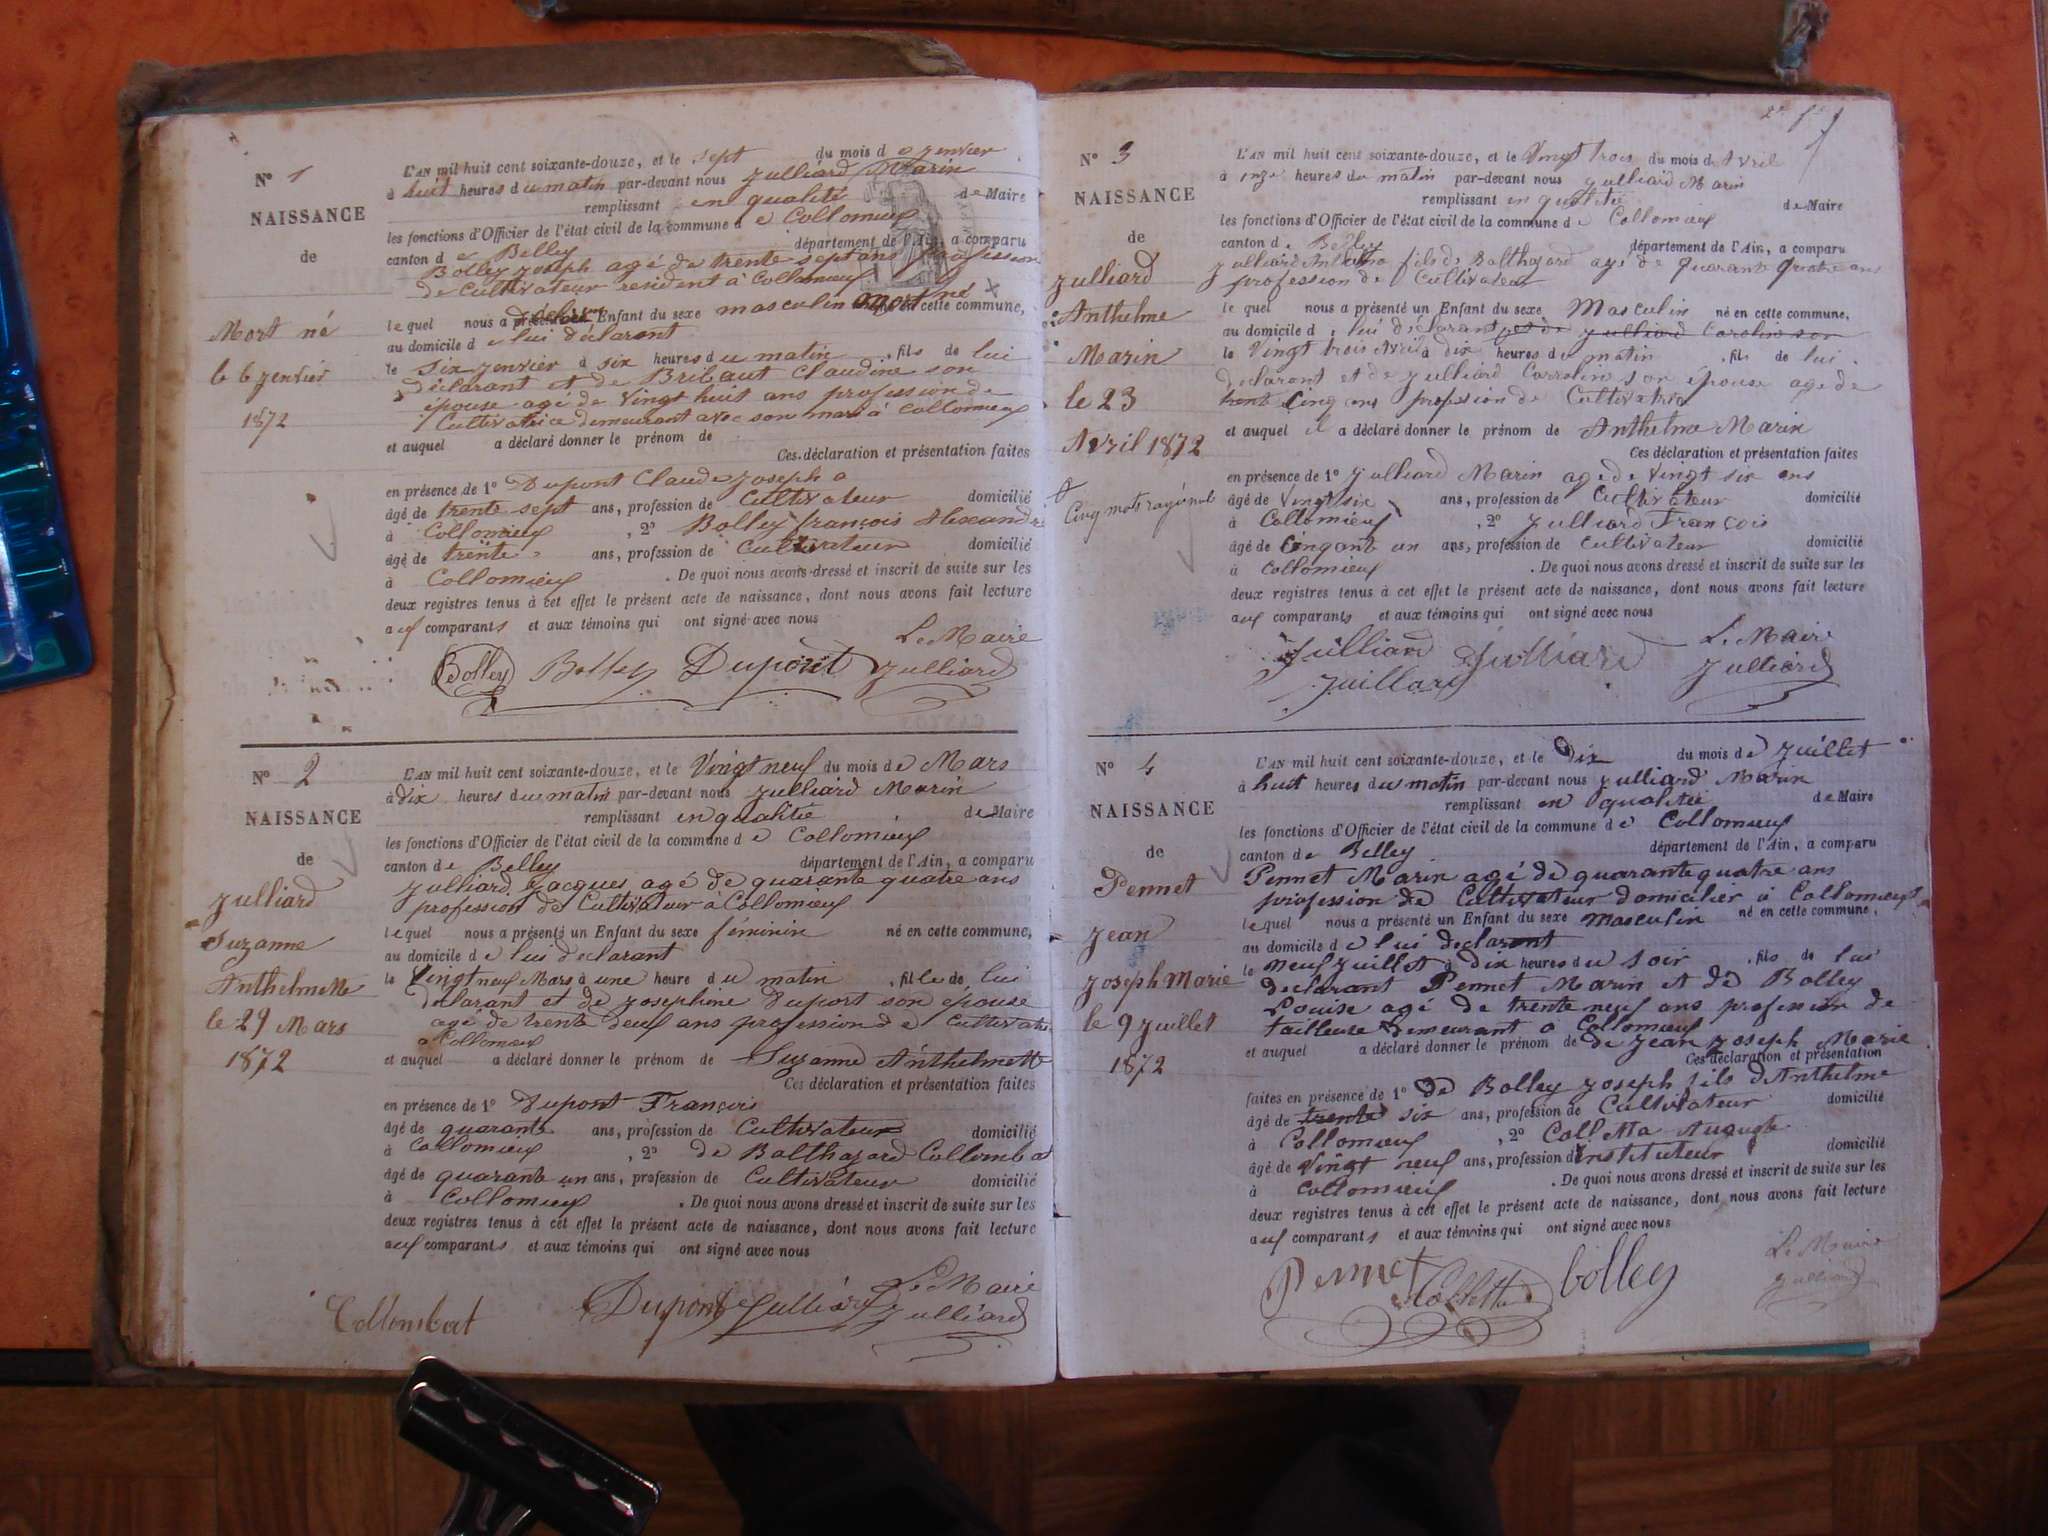 N° 1
NAISSANCE
de
Mort né
le 6 Jenvier
1872
L'AN mil huit cent soixante-douze, et le sept du mois de Jenvier
à huit heures du matin par-devant nous Julliard Marin
remplissant en qualité de Maire
les fonctions d'Officier de l'état civil de la commune de Collomieu
canton de Belley département de l'Ain, a comparu
Bolley Joseph agé de trente sept ans profession
de Cultivateur resident à Collomieu
lequel nous a Enfant du sexe masculin mort né en cette commune,
au domicile de lui déclarant
le six Jenvier à six heures du matin, fils de lui
déclarant et de Bribaut Claudine son
épouse agé de vingt huit ans profession de
Cultivatrice demeurant avec son mari à Collomieu
et auquel a déclaré donner le prénom de
Ces déclaration et présentation faites
en présence de 1° Dupont Claude Joseph
âgé de trente sept ans, profession de Cultivateur domicilié
à Collomieu, 2° Bolley françois Alexandre
âgé de trente ans, profession de Cultivateur domicilié
à Collomieu. De quoi nous avons dressé et inscrit de suite sur les
deux registres tenus à cet effet le présent acte de naissance, dont nous avons fait lecture
aux comparants et aux témoins qui ont signé avec nous
Le Maire
Bolley Bolley Dupont Julliard
N° 2
NAISSANCE
de
Julliard
Suzanne
Anthelmette
le 29 Mars
1872
L'AN mil huit cent soixante-douze, et le Vingt neuf du mois de Mars
à dix heures du matin par-devant nous Julliard Marin
remplissant en qualitée de Maire
les fonctions d'Officier de l'état civil de la commune de Collomieu
canton de Belley département de l'Ain, a comparu
Julliard Jacques agé de quarante quatre ans
profession de Cultivateur à Collomieu
lequel nous a présenté un Enfant du sexe féminin né en cette commune,
au domicile de lui declarant
le Vingt neuf Mars à une heure du matin, fille de lui
declarant et de Josephine Duport son épouse
agé de trente deux ans profession de Cultivatri
a Collomieu
et auquel a déclaré donner le prénom de Suzanne Anthelmette
Ces déclaration et présentation faites
en présence de 1° Dupont François
âgé de quarante ans, profession de Cultivateur domicilié
à Collomieu, 2° de Balthazard Collombat
âgé de quarante un ans, profession de Cultivateur domicilié
à Collomieu. De quoi nous avons dressé et inscrit de suite sur les
deux registres tenus à cet effet le présent acte de naissance, dont nous avons fait lecture
aux comparants et aux témoins qui ont signé avec nous
Le Maire
Collombat Dupont Julliard Julliard
N° 3
NAISSANCE
de
Julliard
Anthelme
Marin
le 23
Avril 1872
Cinq mots rayé nul
L'AN mil huit cent soixante-douze, et le Vingt trois du mois de Avril
à onze heures du matin par-devant nous Julliard Marin
remplissant en qualitée de Maire
les fonctions d'Officier de l'état civil de la commune de Collomieu
canton de Belley département de l'Ain, a comparu
Julliard Anthelme fils de Balthazard agé de quarante quatre ans
profession de Cultivateur
lequel nous a présenté un Enfant du sexe Masculin né en cette commune,
au domicile de lui déclarant et de Julliard Carolin son
le Vingt trois Avril à dix heures du matin, fils de lui
declarant et de Julliard Carrolin son épouse age de
trente Cinq ans profession de Cultivatric
et auquel il a déclaré donner le prénom de Anthelme Marin
Ces déclaration et présentation faites
en présence de 1° Julliard Marin age de Vingt six ans
âgé de Vingt six ans, profession de Cultivateur domicilié
à Collomieu, 2° Julliard François
âgé de Cinqante un ans, profession de Cultivateur domicilié
à Collomieu. De quoi nous avons dressé et inscrit de suite sur les
deux registres tenus à cet effet le présent acte de naissance, dont nous avons fait lecture
aux comparants et aux témoins qui ont signé avec nous
Julliard Julliard Le Maire
Juillard Julliard
N° 4
NAISSANCE
de
Pennet
Jean
Joseph Marie
le 9 Juillet
1872
L'AN mil huit cent soixante-douze, et le Dix du mois de Juillet
à huit heures du matin par-devant nous Julliard Marin
remplissant en qualitée de Maire
les fonctions d'Officier de l'état civil de la commune de Collomieu
canton de Belley département de l'Ain, a comparu
Pennet Marin agé de quarante quatre ans
profession de Cultivateur domicilier à Collomieu
lequel nous a présenté un Enfant du sexe masculin né en cette commune,
au domicile de lui declarant
le neuf Juillet à dix heures du soir, fils de lui
declarant Pennet Marin et de Bolley
Louise agé de trente neuf ans profession de
tailleuse demeurant a Collomieu
et auquel a déclaré donner le prénom de de Jean Joseph Marie
Ces déclaration et présentation
faites en présence de 1° de Bolley Joseph fils d'Anthelme
âgé de trente six ans, profession de Cultivateur domicilié
à Collomieu, 2° Colletta Auguste
âgé de Vingt neuf ans, profession d'instituteur domicilié
à Collomieu. De quoi nous avons dressé et inscrit de suite sur les
deux registres tenus à cet effet le présent acte de naissance, dont nous avons fait lecture
aux comparants et aux témoins qui ont signé avec nous
Le Maire
Pennet Colletta bolley Julliard